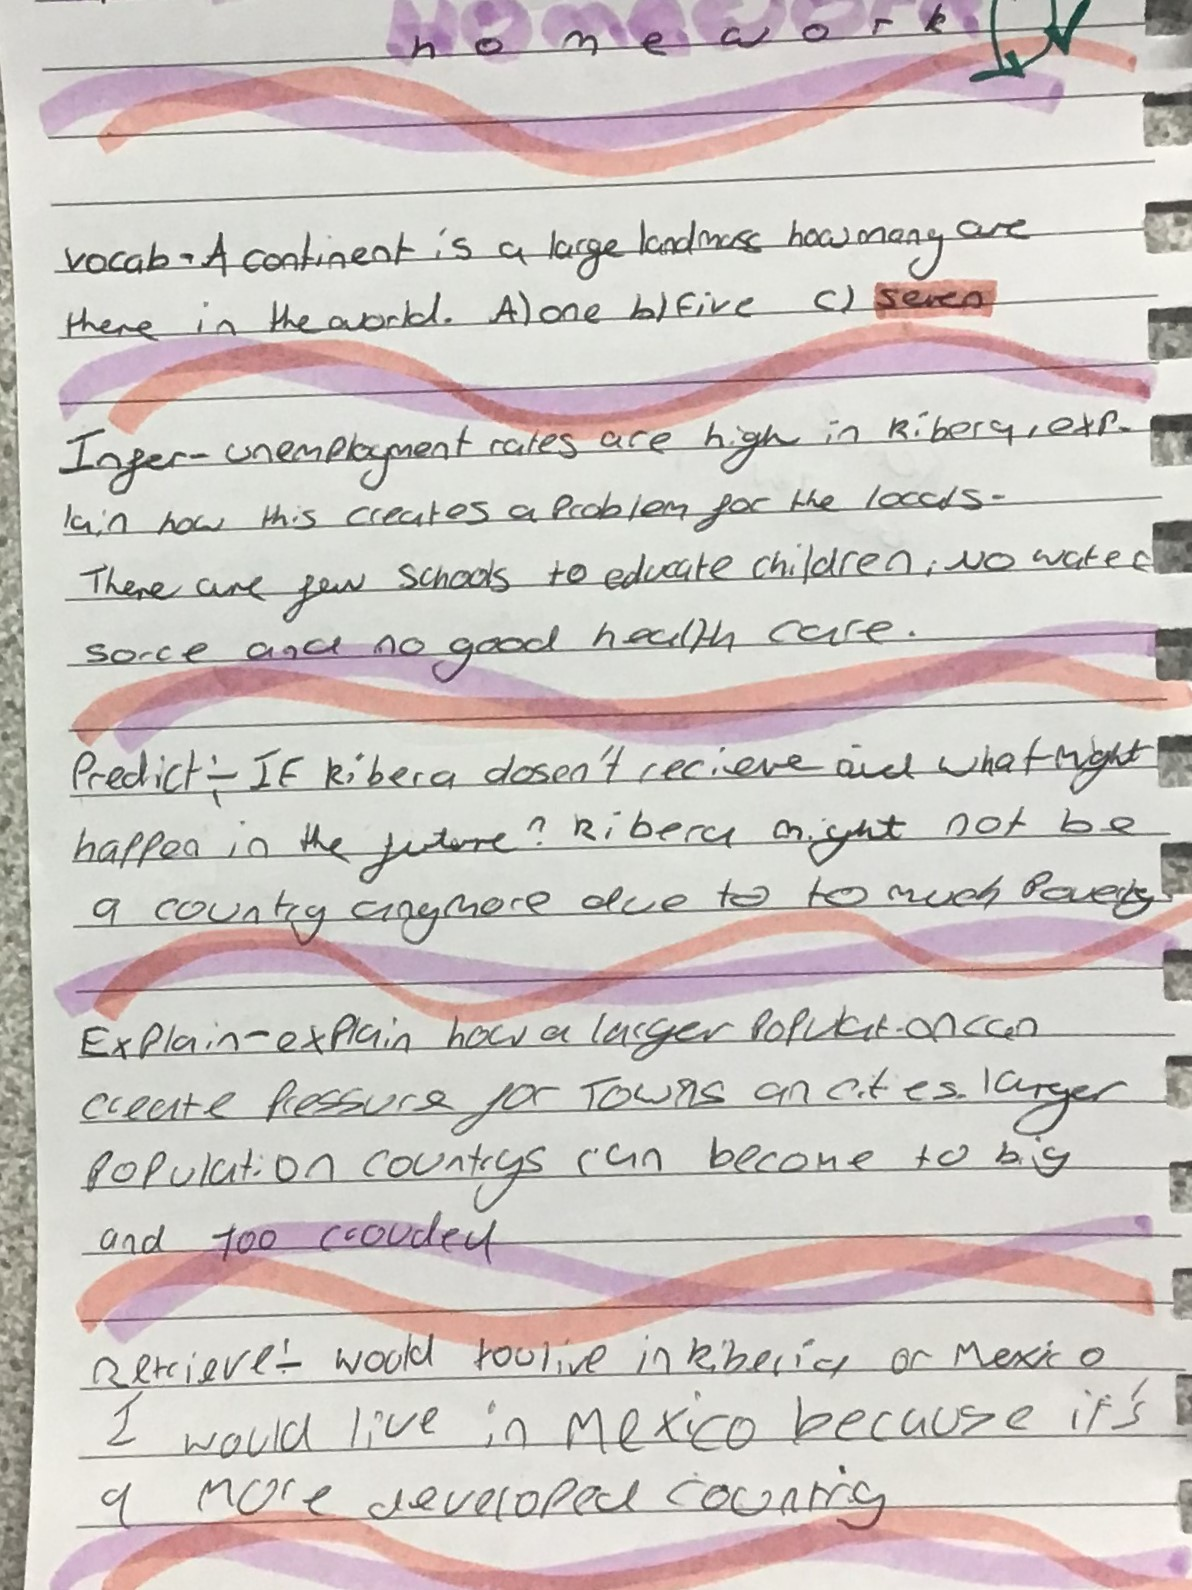 HOMEWORK
homework
vocab - A continent is a large landmass how many are
there in the world. A) one b) five C) seven
Infer - unemployment rates are high in Kibera, exp-
lain how this creates a Problem for the locals-
There are few schools to educate children, No water
sorce and no good health care.
Predict:- IF Kibera dosen't recieve aid what might
happen in the future? Kibera might not be
a country anymore due to to much Poverty
Explain - explain how a larger Population can
create Pressure for Towns an cities. larger
Population countrys can become to big
and too crouded
Retrieve:- would you live in Kiberia or Mexico
I would live in Mexico because it's
a more developed country